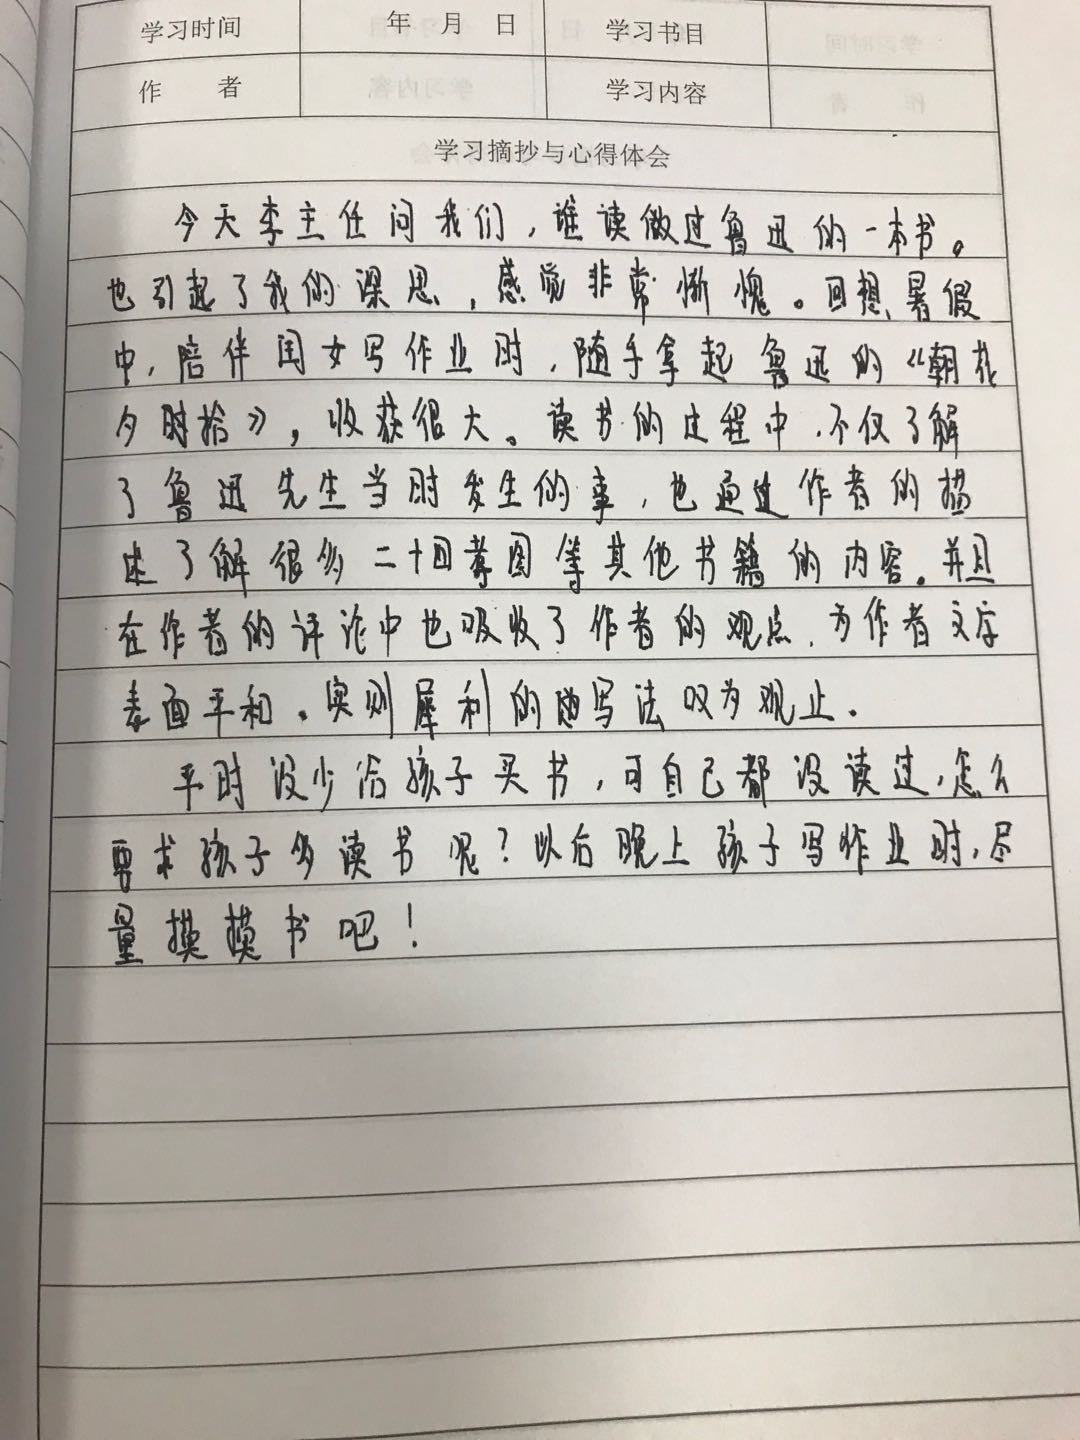 学习时间 年 月 日 学习书目
作 者 学习内容
学习摘抄与心得体会
今天李主任问我们，谁读做过鲁迅的一本书。
也引起了我的深思，感觉非常惭愧。回想暑假
中，陪伴闺女写作业时，随手拿起鲁迅的《朝花
夕时拾》，收获很大。读书的过程中，不仅了解
了鲁迅先生当时发生的事，也通过作者的描
述了解很多二十四孝图等其他书籍的内容。并且
在作者的评论中也吸收了作者的观点，为作者文字
表面平和。实则犀利的写法叹为观止。
平时没少给孩子买书，可自己都没读过，怎么
要求孩子多读书呢？以后晚上孩子写作业时，尽
量摸摸书吧！